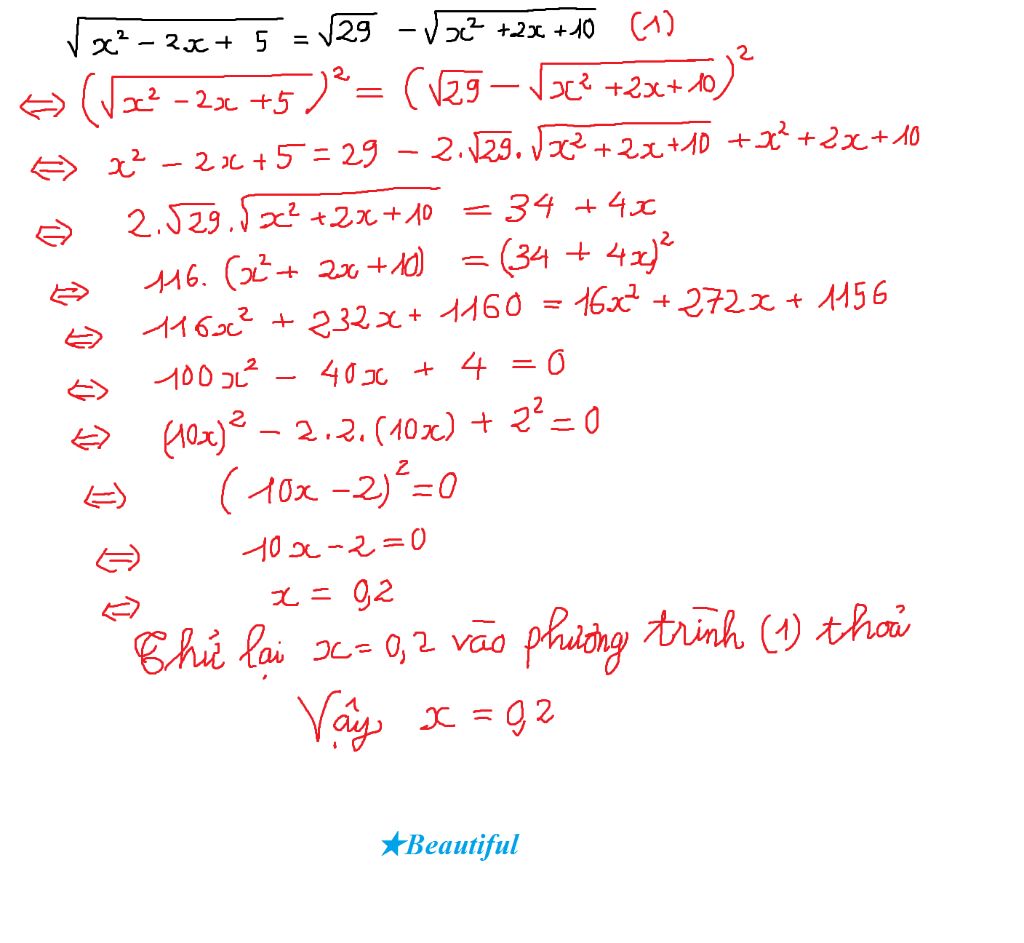 √(x² - 2x + 5) = √29 - √(x² + 2x + 10) (1)
⇔ (√(x² - 2x + 5))² = (√29 - √(x² + 2x + 10))²
⇔ x² - 2x + 5 = 29 - 2.√29.√(x² + 2x + 10) + x² + 2x + 10
⇔ 2.√29.√(x² + 2x + 10) = 34 + 4x
⇔ 116.(x² + 2x + 10) = (34 + 4x)²
⇔ 116x² + 232x + 1160 = 16x² + 272x + 1156
⇔ 100x² - 40x + 4 = 0
⇔ (10x)² - 2.2.(10x) + 2² = 0
⇔ (10x - 2)² = 0
⇔ 10x - 2 = 0
⇔ x = 0,2
Thử lại x = 0,2 vào phương trình (1) thoả
Vậy x = 0,2
★Beautiful